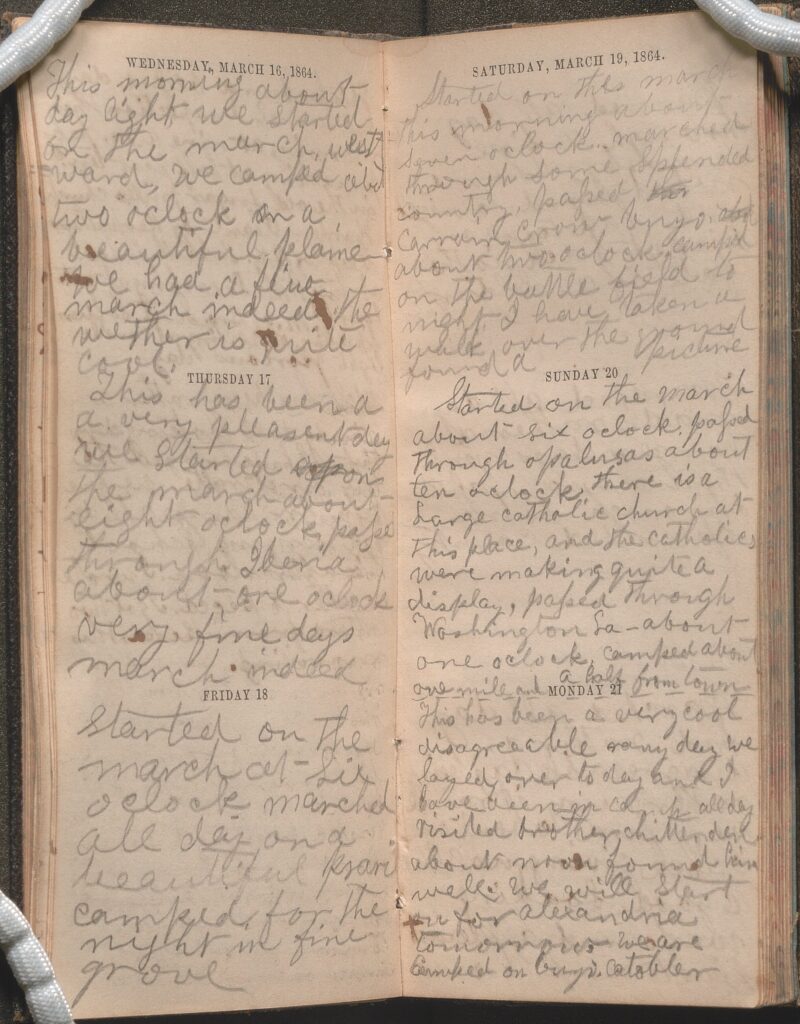 WEDNESDAY, MARCH 16, 1864.
This morning about
day light we started
on the march, west
ward, we camped abut
two oclock on a
beautiful plaine
we had a fine
march indeed the
wether is quite
cool.
THURSDAY 17
This has been a
a very pleasent day
we started on
the march about
eight oclock, passe
through Iberia
about one oclock
very fine days
march indeed
FRIDAY 18
Started on the
march at six
oclock marched
all day on a
beautiful prari
camped for the
night in fine
grove
SATURDAY, MARCH 19, 1864.
Started on thes march
this morning about
seven oclock. marched
through some splended
country, passed
Carrain Crow buyo.
about two oclock campd
on the battle field to
night I have taken a
walk over the ground
found a picture
SUNDAY 20
Started on the march
about six oclock. passed
through opalusas about
ten oclock, there is a
Large catholic church at
this place, and the catholics
were making quite a
display, passed through
Washington La - about
one oclock, camped about
one mile and a half from town
MONDAY 21
This has been a very cool
disagreeable rany day we
layed over to day and I
have been in camp all day
visited brother chittenden
about noon found him
well. We will start
on for alexandria
tomorrow we are
Camped on buyo.